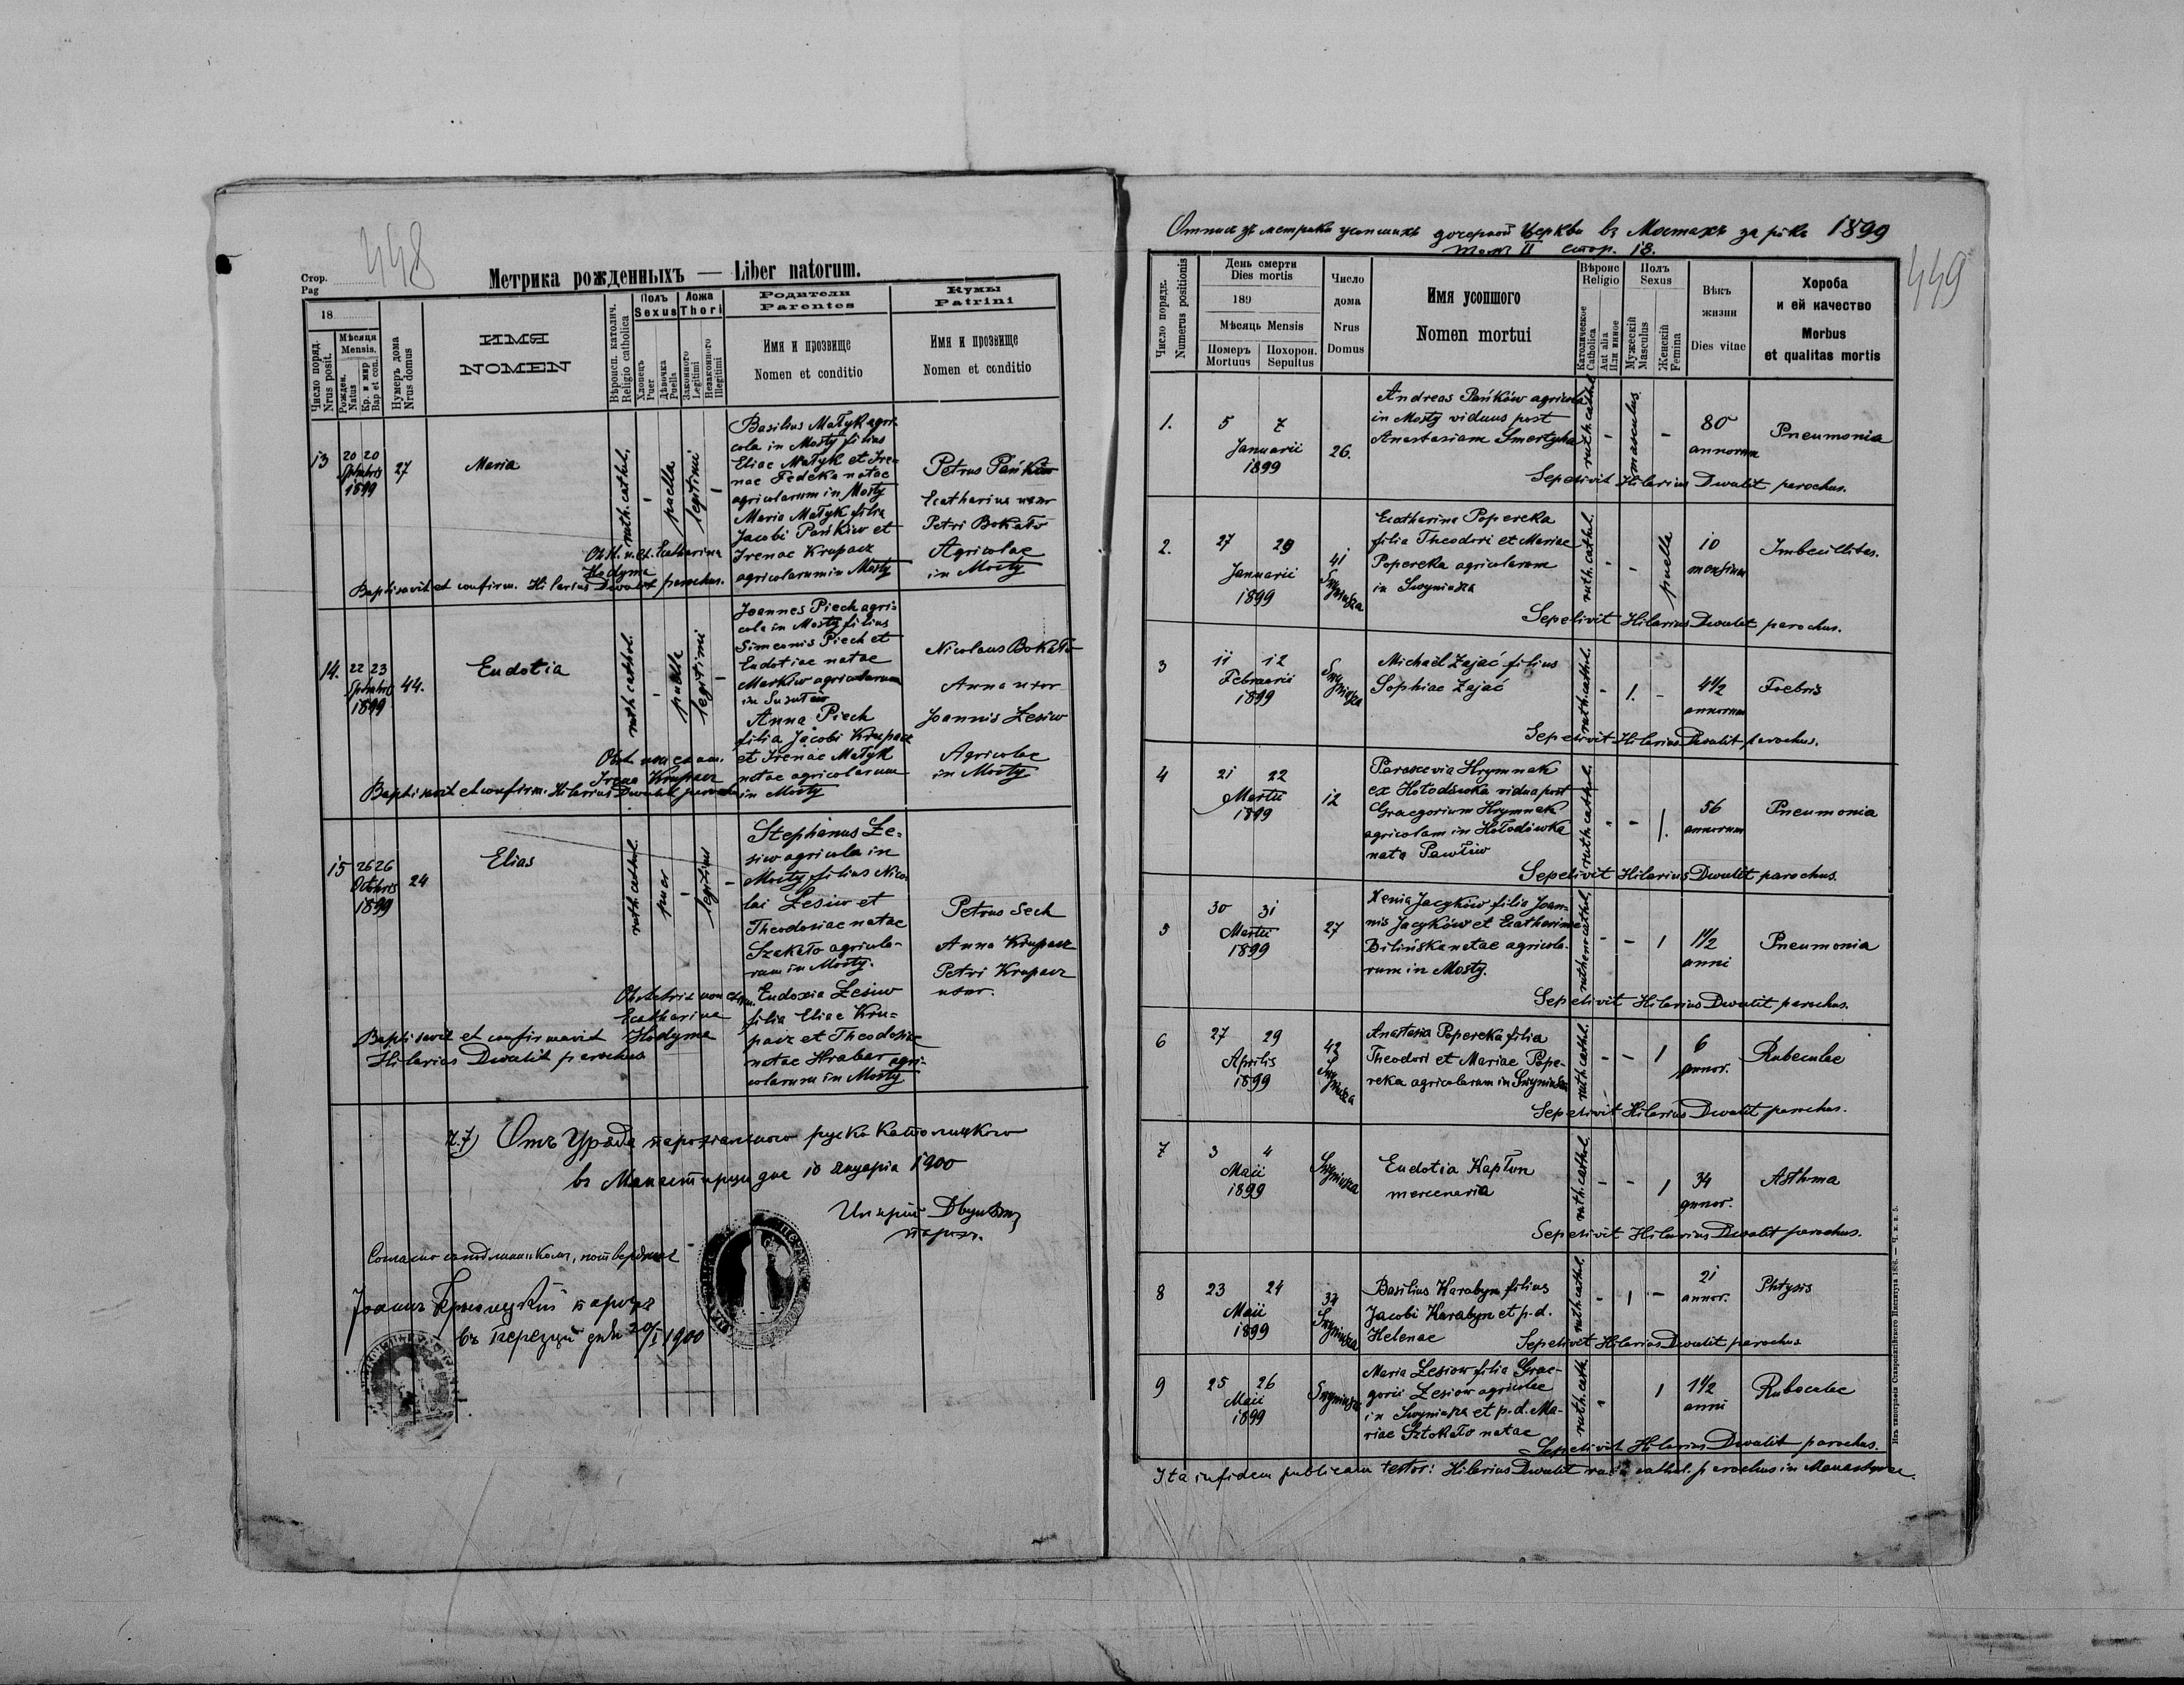 448
Стор.
Pag
Метрика рожденныхъ — Liber natorum.
18
Число поряд.
Nrus posit.
Мѣсяця
Mensis.
Рожден.
Natus
Кр. и мир
Bap et con.
Нумеръ дома
Nrus domus
ИМЯ
NOMEN
Вѣроисп. католич.
Religio catholica
Полъ
Sexus
Хлопецъ
Puer
Дѣвочка
Puella
Ложа
Thori
Законного
Legitimi
Незаконного
Illegitimi
Родители
Parentes
Имя и прозвище
Nomen et conditio
Кумы
Patrini
Имя и прозвище
Nomen et conditio
13
20 20
Sptmbris
1899
27
Maria
ruth. cathol.
-
puella
legitimi
-
Basilius Małyk agri-
cola in Mosty filius
Eliae Małyk et Ire-
nae Fedeka natae
agricolarum in Mosty
Maria Małyk filia
Jacobi Pańków et
Irenae Krupacz
agricolarum in Mosty
Petrus Pańków
Ecatharina uxor
Petri Bokało
Agricolae
in Mosty
Obst. n. ex. Ecatharina
Hodyma
Baptisavit et confirm. Hilarius Dwulit parochus.
14.
22 23
Sptmbris
1899
44.
Eudotia
ruth. cathol.
-
puella
legitimi
-
Joannes Piech agri-
cola in Mosty filius
Simeonis Piech et
Eudotiae natae
Markiw agricolarum
in
Anna Piech
filia Jacobi Krupacz
et Irenae Małyk
natae agricolarum
in Mosty
Nicolaus Bokało
Anna uxor
Joannis Lesiw
Agricolae
in Mosty
Obst. non exam.
Irena Krupacz
Baptisavit et confirm. Hilarius Dwulit parochus
15
26 26
Octobris
1899
24
Elias
ruth. cathol.
puer
-
legitimi
-
Stephanus Le-
siw agricola in
Mosty filius Nico-
lai Lesiw et
Theodosiae natae
Szakało agricola-
rum in Mosty.
Eudoxia Lesiw
filia Eliae Kru-
pacz et Theodosiae
natae Hrabar agri-
colarum in Mosty
Petrus Sech
Anna Krupacz
Petri Krupacz
uxor.
Obstetrix non exam.
Ecatharina
Hodyma
Baptisavit et confirmavit
Hilarius Dwulit parochus
Ч. 7) Отъ Уряда парохіального руско католицкого
въ Манастирци дня 10 януарія 1900
Иларій Двулит
парох.
Согласно съ подлинникомъ, потверджає
Іоаннъ парохъ
въ дня 20/I 1900
Отпис зъ метрикъ усопшихъ дочерной Церкви въ Мостахъ за рокъ 1899
Томъ II стор. 18.
449
Число порядк.
Numerus positionis
День смерти
Dies mortis
189
Мѣсяць Mensis
Померъ
Mortuus
Похорон.
Sepultus
Число
дома
Nrus
Domus
Имя усопшого
Nomen mortui
Вѣроис
Religio
Католическое
Catholica
Aut alia
Или инное
Полъ
Sexus
Мужескій
Masculus
Женскій
Femina
Вѣкъ
жизни
Dies vitae
Хороба
и ей качество
Morbus
et qualitas mortis
1.
5 7
Januarii
1899
26.
Andreas Pańków agricola
in Mosty viduus post
Anastasiam Smertycha
ruth. cathol.
-
masculus.
-
80
annorum
Pneumonia
Sepelivit Hilarius Dwulit parochus.
2.
27 29
Januarii
1899
41
Swyniusza
Ecatharina Popereka
filia Theodori et Mariae
Popereka agricolarum
in Swyniusza
ruth. cathol.
-
-
puella
10
mensium
Imbecillitas.
Sepelivit Hilarius Dwulit parochus.
3
11 12
Februarii
1899
Swyniusza
Michaël Zajać filius
Sophiae Zajać
ruth. cathol.
-
1.
-
4 1/2
annorum
Foebris
Sepelivit Hilarius Dwulit parochus.
4
21 22
Martii
1899
12
Parascevia Hrymnak
ex Hołodówka vidua post
Graegorium Hrymnak
agricolam in Hołodówka
nata Pawliw
ruth. cathol.
-
-
1.
56
annorum
Pneumonia
Sepelivit Hilarius Dwulit parochus.
5
30 31
Martii
1899
27
Xenia Jacyków filia Joan-
nis Jacyków et Ecatharinae
Bilińska natae agricola-
rum in Mosty.
rutheno cathol.
-
-
1
1 1/2
anni
Pneumonia
Sepelivit Hilarius Dwulit parochus.
6
27 29
Aprilis
1899
42
Swyniusza
Anastasia Popereka filia
Theodori et Mariae Pope-
reka agricolarum in Swyniusza
ruth. cathol.
-
-
1
6
annor.
Rubeculae
Sepelivit Hilarius Dwulit parochus.
7
3 4
Maii
1899
Swyniusza
Eudotia Kapłun
mercenaria
ruth. cathol.
-
-
1
34
annor.
Asthma
Sepelivit Hilarius Dwulit parochus.
8
23 24
Maii
1899
34
Swyniusza
Basilius Harabyn filius
Jacobi Harabyn et p. d.
Helenae
ruth. cathol.
-
1
-
21
annor.
Phtysis
Sepelivit Hilarius Dwulit parochus
9
25 26
Maii
1899
Swyniusza
Maria Lesiow filia Grae-
gorii Lesiow agricolae
in Swyniusza et p. d. Ma-
riae Sztokało natae
ruth. cath.
-
1
1 1/2
anni
Rubeculae
Sepelivit Hilarius Dwulit parochus.
Ita in fidem publicam testor: Hilarius Dwulit cathol. parochus in Manasterzec.
Изъ типографіи Ставропигійского Института 1886. — Ч. в. в. 5.